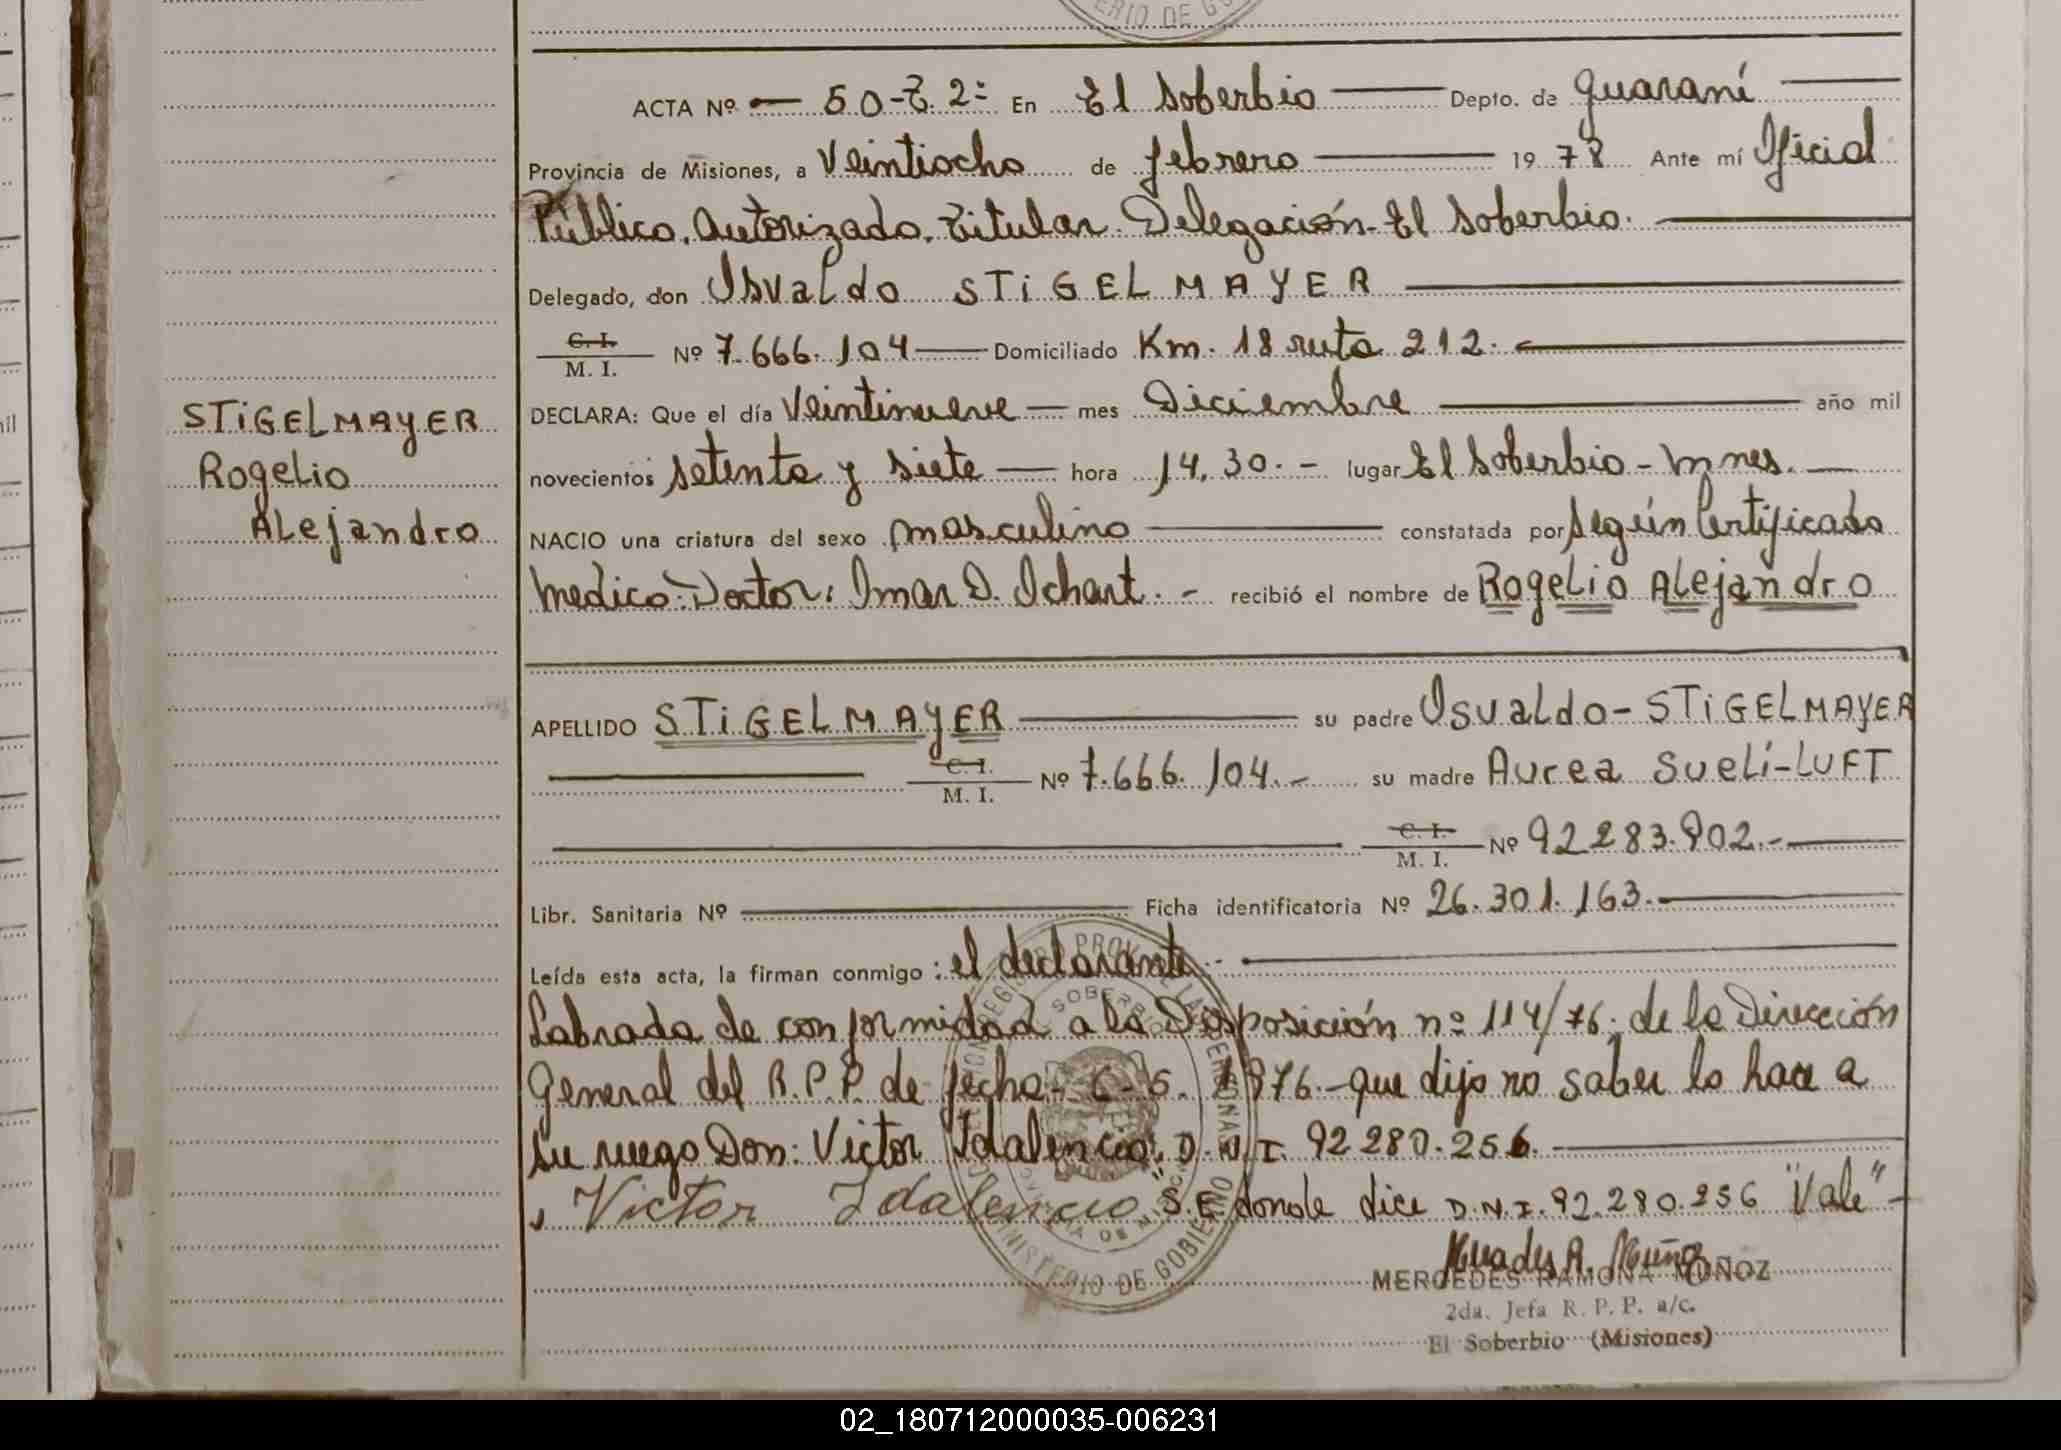 ERIO DE GO
ACTA Nº 50-T. 2º En El Soberbio Depto. de Guaraní
Provincia de Misiones, a Veintiocho de febrero 1978 Ante mí Oficial
Público. Autorizado. Titular. Delegación. El Soberbio.
Delegado, don Osvaldo STiGELMAYER
C. I. / M. I. Nº 7.666.104 Domiciliado Km. 18 ruta 212.
STiGELMAYER
Rogelio
Alejandro
DECLARA: Que el día Veintinueve mes Diciembre año mil
novecientos setenta y siete hora 14,30.- lugar El Soberbio - Mnes.
NACIO una criatura del sexo masculino constatada por según Certificado
Medico: Doctor: Omar D. Ochart. - recibió el nombre de Rogelio Alejandro
APELLIDO STiGELMAYER su padre Osvaldo - STiGELMAYER
C. I. / M. I. Nº 7.666.104.- su madre Aurea Sueli-LUFT
C. I. / M. I. Nº 92283.902.-
Libr. Sanitaria Nº Ficha identificatoria Nº 26.301.163.-
Leída esta acta, la firman conmigo: el declarante.-
Labrada de conformidad a la Disposición nº 114/76. de la Dirección
General del R.P.P. de fecha - 6-5. 1976.- que dijo no saber lo hace a
su ruego Don: Victor Idalencio. D.N.I. 92280.256.
Victor Idalencio. S. E donde dice D.N.I. 92.280.256 "Vale"-
Mercedes R. Muñoz
MERCEDES RAMONA MUÑOZ
2da. Jefa R. P. P. a/c.
El Soberbio (Misiones)
REGISTRO PROV. DE LAS PERSONAS
SOBERBIO
MINISTERIO DE GOBIERNO
02_180712000035-006231